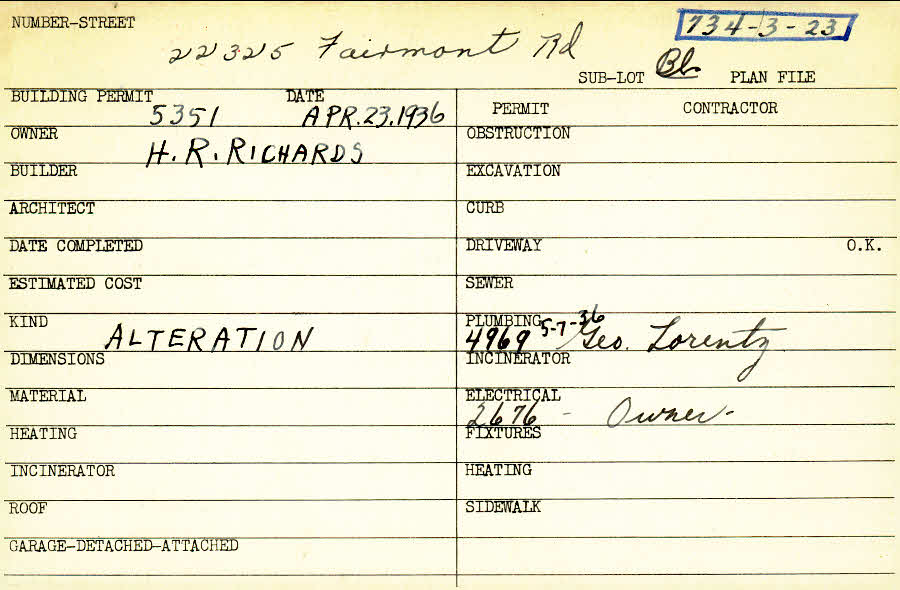 NUMBER-STREET
22325 Fairmont Rd
734-3-23
SUB-LOT Bl. PLAN FILE
BUILDING PERMIT DATE
5351 APR. 23. 1936
PERMIT CONTRACTOR
OWNER
H. R. RICHARDS
OBSTRUCTION
BUILDER
EXCAVATION
ARCHITECT
CURB
DATE COMPLETED
DRIVEWAY O.K.
ESTIMATED COST
SEWER
KIND
ALTERATION
PLUMBING
4969 5-7-36 Geo. Lorentz
DIMENSIONS
INCINERATOR
MATERIAL
ELECTRICAL
2676 - Owner-
HEATING
FIXTURES
INCINERATOR
HEATING
ROOF
SIDEWALK
GARAGE-DETACHED-ATTACHED